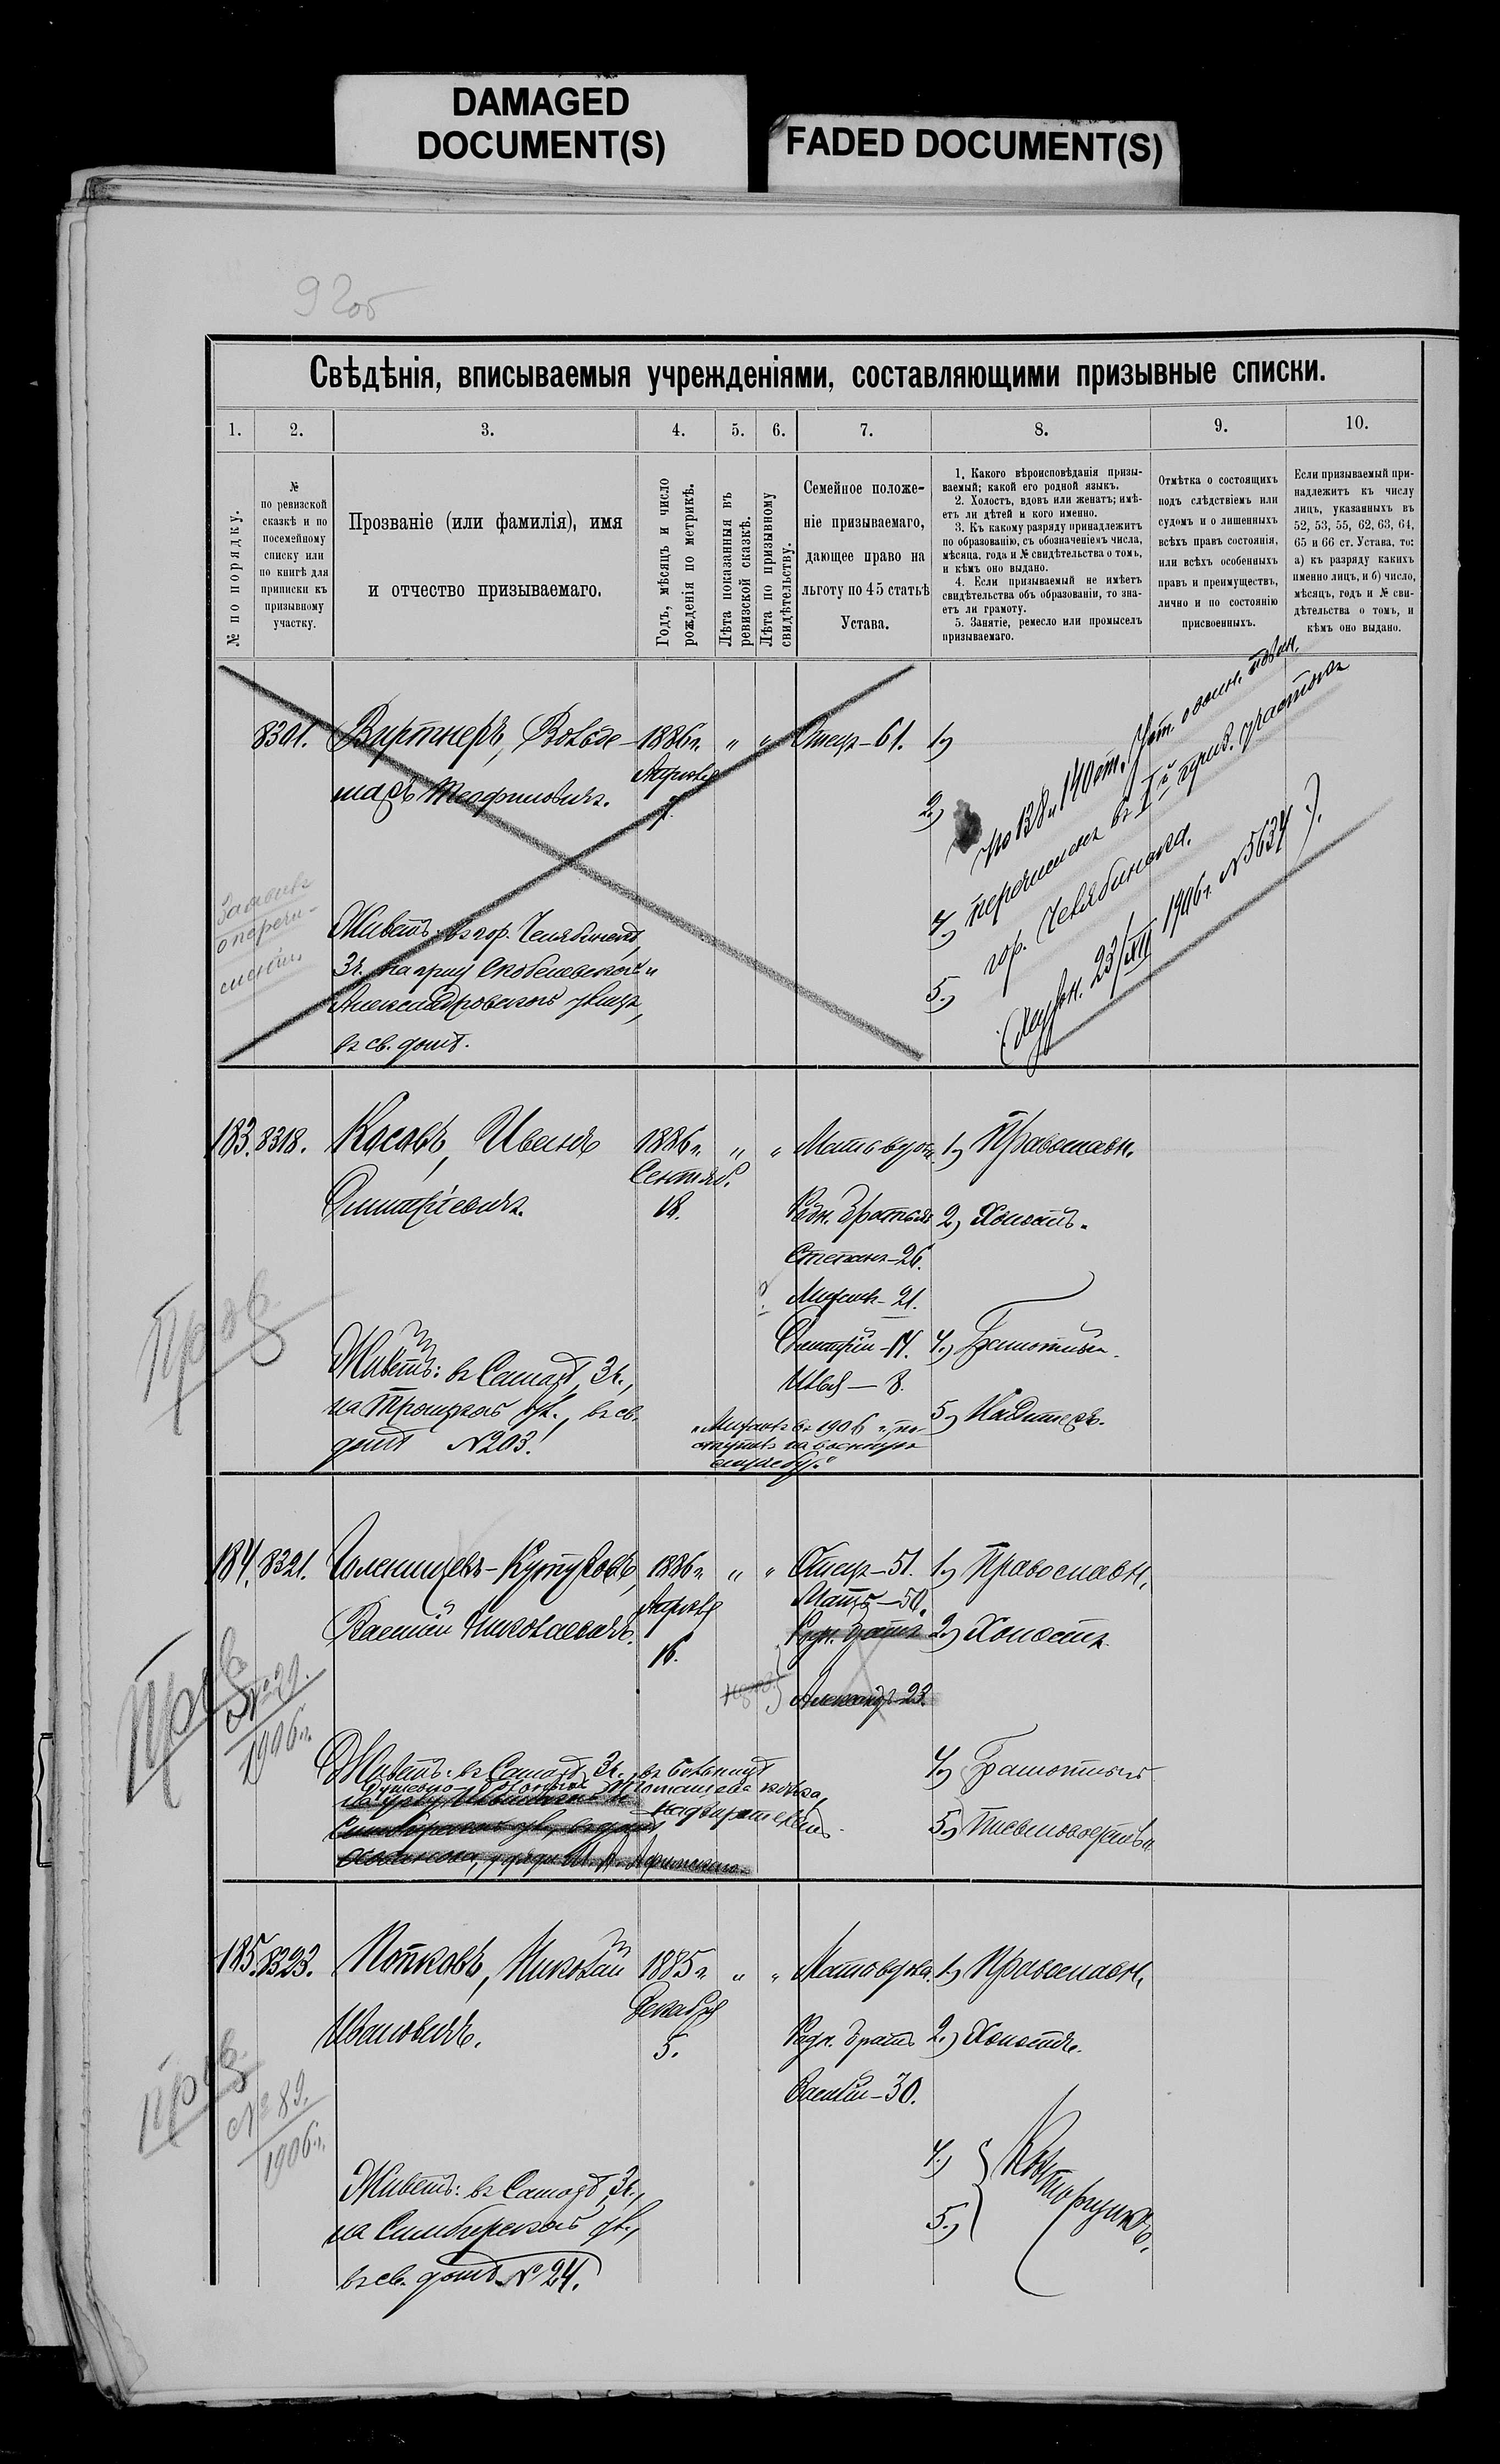 DAMAGED
DOCUMENT(S)
FADED DOCUMENT(S)
92об
Свѣдѣнія, вписываемыя учрежденіями, составляющими призывные списки.
1. 2. 3. 4. 5. 6. 7. 8. 9. 10.
№ по порядку.
№
по ревизской
сказкѣ и по
посемейному
списку или
по книгѣ для
приписки къ
призывному
участку.
Прозваніе (или фамилія), имя
и отчество призываемаго.
Годъ, мѣсяцъ и число
рожденія по метрикѣ.
Лѣта показанныя въ
ревизской сказкѣ.
Лѣта по призывному
свидѣтельству.
Семейное положе-
ніе призываемаго,
дающее право на
льготу по 45 статьѣ
Устава.
1. Какого вѣроисповѣданія призы-
ваемый; какой его родной языкъ.
2. Холостъ, вдовъ или женатъ; имѣ-
етъ ли дѣтей и кого именно.
3. Къ какому разряду принадлежитъ
по образованію, съ обозначеніемъ числа,
мѣсяца, года и № свидѣтельства о томъ,
и кѣмъ оно выдано.
4. Если призываемый не имѣетъ
свидѣтельства объ образованіи, то зна-
етъ ли грамоту.
5. Занятіе, ремесло или промыселъ
призываемаго.
Отмѣтка о состоящихъ
подъ слѣдствіемъ или
судомъ и о лишенныхъ
всѣхъ правъ состоянія,
или всѣхъ особенныхъ
правъ и преимуществъ,
лично и по состоянію
присвоенныхъ.
Если призываемый при-
надлежитъ къ числу
лицъ, указанныхъ въ
52, 53, 55, 62, 63, 64,
65 и 66 ст. Устава, то:
а) къ разряду какихъ
именно лицъ, и б) число,
мѣсяцъ, годъ и № сви-
дѣтельства о томъ, и
кѣмъ оно выдано.
8301. Виртнеръ, Вольде- 1886 г. " " Отецъ-61. 1)
маръ Теофиловичъ. Апрѣля
7.
2)
По 138 и 140 ст. Уст. о воин. повин.
перечисленъ въ I й приз. участокъ
гор. Челябинска.
(Журн. 23/XII 1906 г. № 5634).
4)
5)
Живетъ: въ гор. Челябинскѣ,
3 ч. на углу Скобелевской и
Александровской улицъ,
въ св. домѣ.
183. 8318. Косовъ, Иванъ 1886 г. " " Мать вдова. 1) Православн.
Дмитріевичъ. Сентяб.
18.
Родн. братья 2) Холостъ.
Степанъ-26.
Михаилъ-21.
Дмитрій-14. 4) Грамотный.
Илья-8.
Живетъ: въ Самарѣ, 3 ч.,
на Троицкой ул., въ св.
домѣ №203.
"Михаилъ въ 1906 г. по-
ступилъ на военную
службу."
184. 8321. Голенищевъ-Кутузовъ, 1886 г. " " Отецъ-51. 1) Православн.
Василій Николаевичъ. Апрѣля
16.
Мать-50.
Родн. братъ 2) Холостъ.
Александръ-23.
№ 29.
1906 г.
Живетъ: въ Самарѣ, 3 ч., въ больницѣ
4) Грамотный
5) Письмоводство
185. 8323. Попковъ, Николай 1885 г. " " Мать вдова. 1) Православн.
Ивановичъ. Декабря
5.
Родн. братъ 2) Холостъ.
Василій-30.
№ 89.
1906 г.
4)
5)
Живетъ: въ Самарѣ, 3 ч.,
на Симбирской ул.,
въ св. домѣ №24.